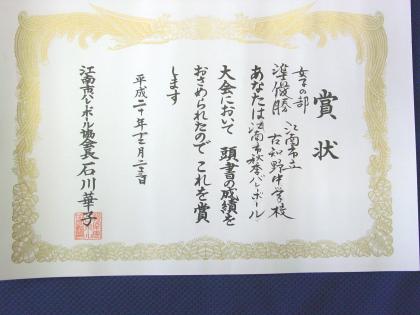 賞状
女子の部
準優勝 江南市立
古知野中学校
あなたは江南市秋季バレーボール
大会において 頭書の成績を
おさめられたので これを賞
します
平成二十年十二月二十三日
江南市バレーボール協会長 石川華子